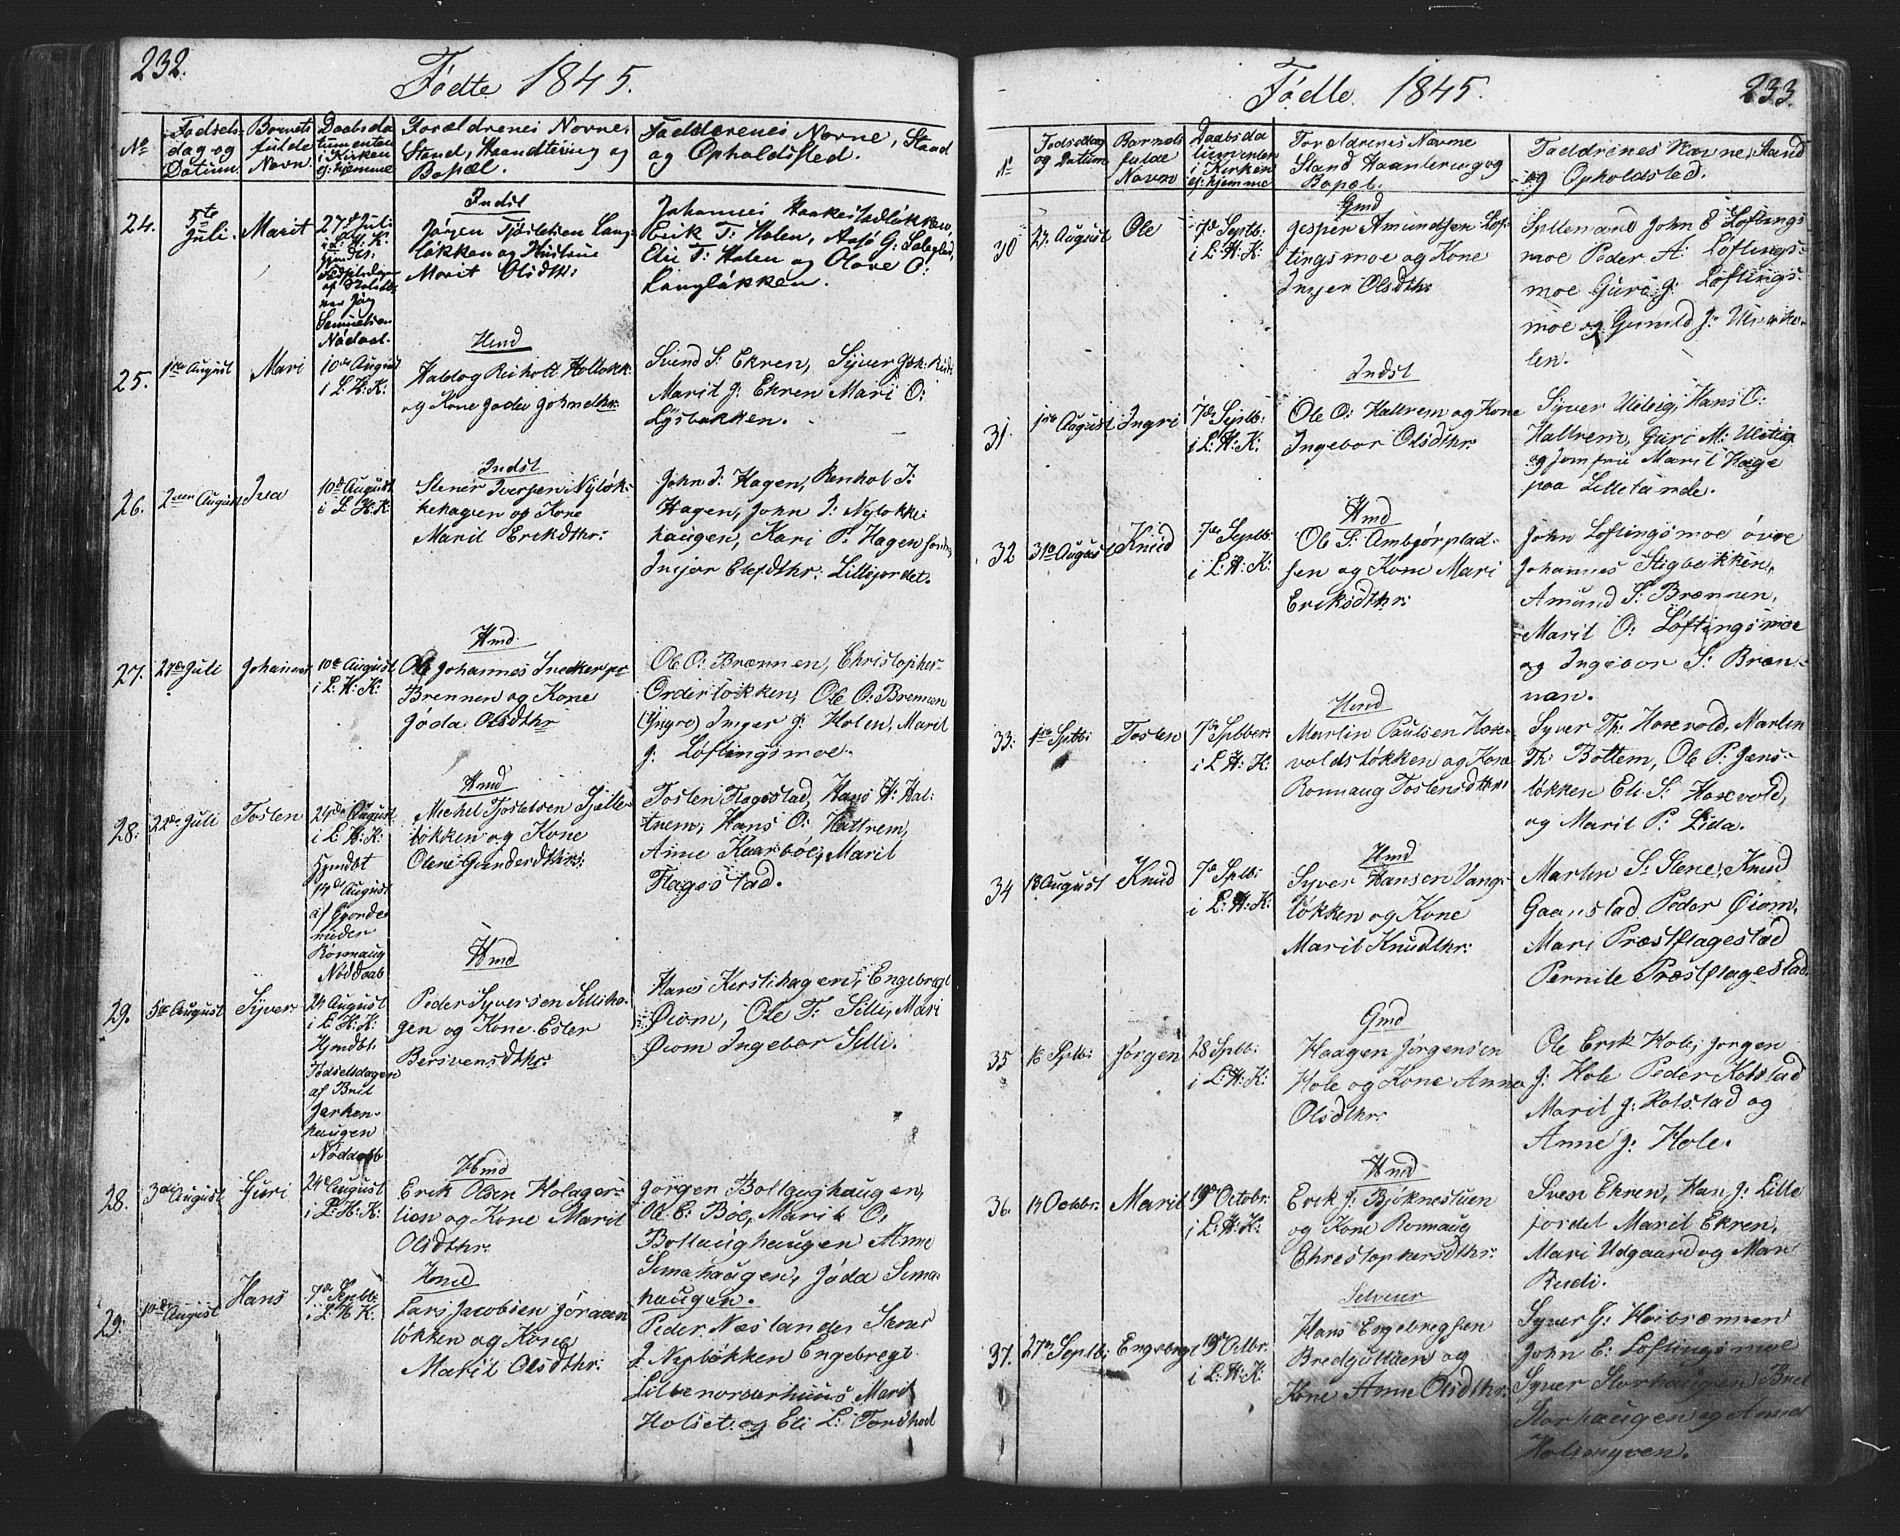 232.
Fødte 1845.
No
Fødsels-
dag og
Datum
Barnets
fulde
Navn
Daabsda
tum enten
i Kirken
el: hjemme
Forældrenes Navne,
Stand, Haandtering og
Bopæl.
Faddernes Navne, Stand
og Opholdssted.
24.
5te
Juli.
Marit
27de Juli
i L: H: K:
Indst
Jørgen Tjøstelsen Lang-
løkken og Hustrue
Marit Olsdtr:
Johannes Haakestadløkken,
Erik T: Holen,
Eli T: Holen og Olave O:
Langløkken.
25.
1ste August
Mari
10de August
i L: H: K:
Hmd
og Kone Johnsdtr:
Svend S: Ekren, Syver
Marit J: Ekren Mari O:
26.
2den August
Iva
10de August
i L: H: K:
Indst
Stener Iversen Nyløk-
kehagen og Kone
Marit Eriksdthr:
John I: Hagen, Renhol I:
Hagen, John I: Nyløkke-
haugen, Kari P: Hagen
Lillejordet.
27.
Juli
Johannes
10de August
i L: H: K:
Hmd.
Ole Johannes
Brennen og Kone
Jøda Olsdthr
Ole O: Brænnen, Christopher
Ole O: Brennen
(Yngre) Inger J: Holen, Marit
J: Løftingsmoe.
28.
22de Juli
Tosten
24de August
i L: H: K:
Hjmdbt
14de August
Nøddaab
Hmd
Michel Tjostelsen
løkken og Kone
Olene
Tosten Flagestad, Hans H: Hal-
trem, Hans O: Hattrem,
Anne Kaarbøe, Marit
Flagestad.
29.
5te August
Syver
24 August
i L: H: K:
Hjmdbt.
Fødselsdagen
af Brit
haugen
Nøddaab
Hmd
Peder Syversen Silliha-
gen og Kone Ester
Bersvensdthr:
Hans Kerstihagen, Engebregt
Øiom, Ole T: Silli, Mari
Øiom Ingebor Silli.
28.
3die August
Guri
24de August
i L: H: K:
Hmd
Erik Olsen Holager-
lien og Kone Marit
Olsdthr:
Jørgen Bollaughaugen,
Ole E: Boe, Marit O:
Bollaughaugen Anne
Simahaugen, Jøda Sima-
haugen.
29.
10de August
Hans
7de Septb:
i L: H: K:
Hmd
Lars Jacobsen
løkken og Kone
Marit Olsdthr:
Peder Næslander
Engebregt
Marit
Holset og Eli L:
233.
Fødte 1845.
No
Fødselsdag
og Datum
Barnets
fulde
Navn
Daabsda
tum enten
i Kirken
el: hjemme
Forældrenes Navne
Stand Haantering og
Bopæl.
Faddrenes Navne, Stand
og Opholdsted.
30
27 August
Ole
7de Septb:
i L: H: K:
Gmd
Jesper Amundsen Løf-
tingsmoe og Kone
Inger Olsdthr
Spillemand John E Løftings
moe Peder A: Løftings-
moe Guri J: Løftings-
moe og Gunild J:
len.
31.
1ste August
Ingri
7de Septb:
i L: H: K:
Indst
Ole O: Hattrem og Kone
Ingebor Olsdthr.
Syver Ulleleig, Hans O:
Hattrem, Guri M: Ulleleig
og Jomfrue Marit Hage
paa Lilletande.
32
31te August
Knud
7de Septb:
i L: H: K:
Hmd
Ole S: Ambjørplad-
sen og Kone Mari
Eriksdthr:
John Løftingsmoe øvre
Johannes Stigbakken,
Amund S: Brænnen,
Marit O: Løftingsmoe
og Ingebor S: Bræn-
nan.
33.
1ste Septb:
Tosten
7de Sebber
i L: H: K:
Hmd
Martin Paulsen Hose-
voldsløkken og Kone
Ronnaug Tostensdthr:
Syver Th: Hosevold, Marten
Th: Bottem, Ole P: Jæns-
løkken Eli S: Hosevold,
og Marit P: Lida.
34
13 August
Knud
7de Septb:
i L: H: K:
Hmd
Syver Hansen Vang-
løkken og Kone
Marit Knudthr:
Marten S: Stene, Knud
Peder Øiom,
Mari Præstflagestad
Pernile Præstflagestad.
35
16 Septb:
Jørgen
28 Septb:
i L: H: K:
Gmd
Haagen Jørgensen
Hole og Kone Anne
Olsdthr:
Ole Erik Hole, Jørgen
J: Hole Peder Kolstad
Marit J: Kolstad og
Anne J: Hole.
36.
14 Octobr:
Marit
19de Octobr:
i L: H: K:
Hmd
Erik J: Bjøknestuen
og Kone Ronnaug
Christophersdthr:
Sven Ekren, Han J: Lille
jordet Marit Ekren,
Mari Udgaard og Mari
Rudi.
37.
27de Septb:
Engebregt
19de Octbr:
i L: H: K:
Selveier
Hans Engebregsen
Bredgutuen og
Kone Anne Olsdthr.
Syver G:
John E: Løftingsmoe
Syver Storhaugen, Brit
Storhaugen og